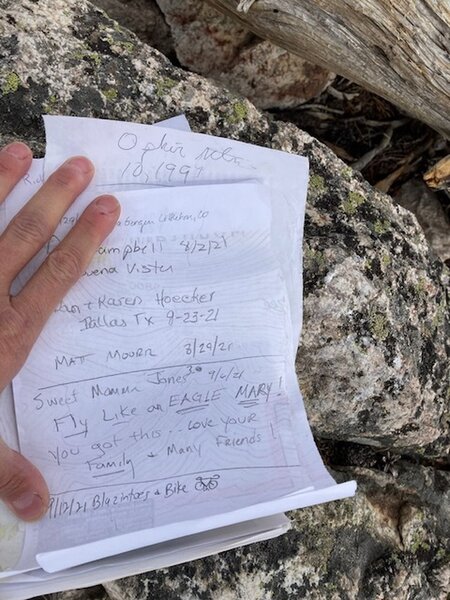 10,1997
Campbell 8/2/21
Buena Vista
+ Karen Hoecker
Dallas Tx 8-23-21
MATT 8/29/21
Sweet Momma Jones 9/6/21
Fly Like an EAGLE MARY!
You got this.. Love your
Family & Many Friends!
9/12/21 Blazintoes & Bike